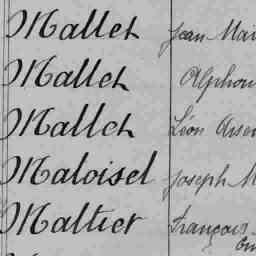 Mallet Jean Mai
Mallet Alphon
Mallet Léon Arsè
Maloisel Joseph M
Maltier François-